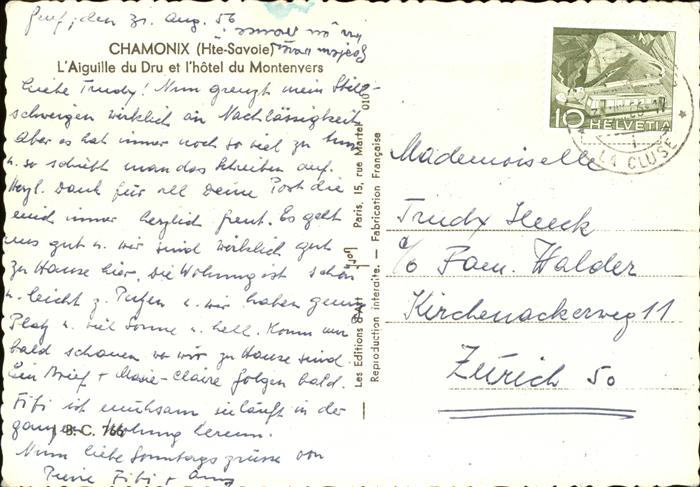 Genf, den 31. Aug. 56
CHAMONIX (Hte-Savoie)
L'Aiguille du Dru et l'hôtel du Montenvers
Liebe Trudy! Nun grenzt mein Still-
schweigen wirklich an Nachlässigkeit
Aber es hat immer noch so viel zu tun
u. so schiebt man das Schreiben auf.
Herzl. Dank für all Deine Post die
mich immer herzlich freut. Es geht
uns gut u. wir sind wirklich gut
zu Hause hier. Die Wohnung ist schön
u. leicht z. putzen u. wir haben genug
Platz u. viel Sonne u. hell. Komm nur
bald schauen wo wir zu Hause sind.
Ein Brief + Marie-Claire folgen bald.
Fifi ist mühsam sie läuft in der
ganzen Wohnung herum.
B. C. 766
Nun liebe Sonntagsgrüsse von
Pierre Fifi +
Les Editions d'Art Paris, 15, rue Martel 010
Reproduction interdite. — Fabrication Française
10 HELVETIA
LA CLUSE
Mademoiselle
Trudy
c/o Fam. Walder
Kirchenackerweg 11
Zürich 50